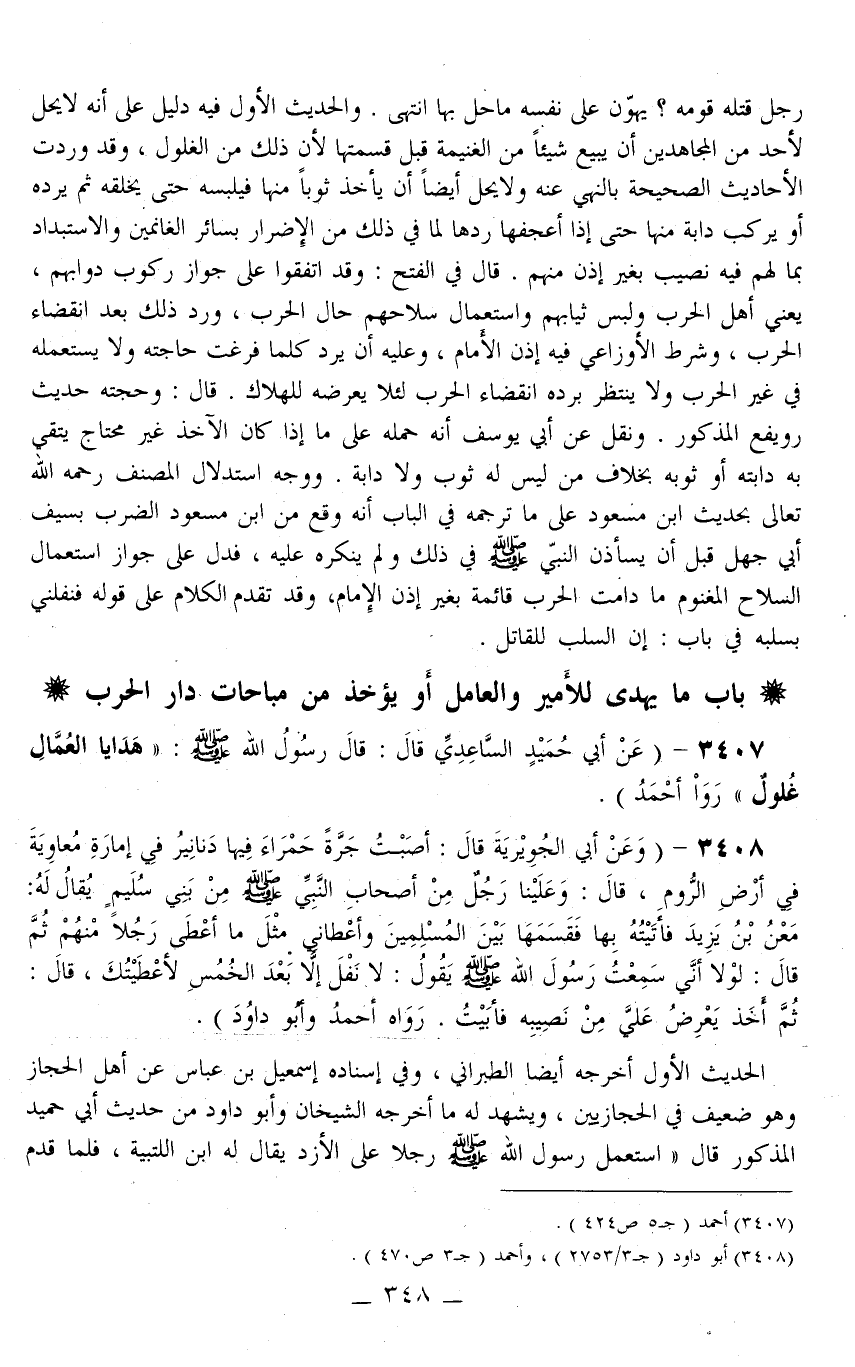 رجل قتله قومه ؟ يهوّن على نفسه ماحل بها انتهى . والحديث الأول فيه دليل على أنه لايحل
لأحد من المجاهدين أن يبيع شيئاً من الغنيمة قبل قسمتها لأن ذلك من الغلول ، وقد وردت
الأحاديث الصحيحة بالنهي عنه ولايحل أيضاً أن يأخذ ثوباً منها فيلبسه حتى يخلقه ثم يرده
أو يركب دابة منها حتى إذا أعجفها ردها لما في ذلك من الإضرار بسائر الغانمين والاستبداد
بما لهم فيه نصيب بغير إذن منهم . قال في الفتح : وقد اتفقوا على جواز ركوب دوابهم ،
يعني أهل الحرب ولبس ثيابهم واستعمال سلاحهم حال الحرب ، ورد ذلك بعد انقضاء
الحرب ، وشرط الأوزاعي فيه إذن الأَمام ، وعليه أن يرد كلما فرغت حاجته ولا يستعمله
في غير الحرب ولا ينتظر برده انقضاء الحرب لئلا يعرضه للهلاك . قال : وحجته حديث
رويفع المذكور . ونقل عن أبي يوسف أنه حمله على ما إذا كان الآخذ غير محتاج يتقي
به دابته أو ثوبه بخلاف من ليس له ثوب ولا دابة . ووجه استدلال المصنف رحمه الله
تعالى بحديث ابن مسعود على ما ترجمه في الباب أنه وقع من ابن مسعود الضرب بسيف
أبي جهل قبل أن يسأذن النبيّ ﷺ في ذلك ولم ينكره عليه ، فدل على جواز استعمال
السلاح المغنوم ما دامت الحرب قائمة بغير إذن الإمام، وقد تقدم الكلام على قوله فنفلني
بسلبه في باب : إن السلب للقاتل .
باب ما يهدى للأَمير والعامل أَو يؤخذ من مباحات دار الحرب
٣٤٠٧ - ( عَنْ أبي حُمَيْدٍ السَّاعِدِيِّ قالَ : قالَ رسولُ الله ﷺ : « هَدَايا العُمَّالِ
غُلولٌ » رَوَاْ أحْمَدُ ) .
٣٤٠٨ - ( وَعَنْ أبي الجُوِيْرِيَةَ قالَ : أصَبْتُ جَرَّةً حَمْرَاءَ فِيها دَنانِيرُ في إمارَةِ مُعاوِيَةَ
فِي أرْضِ الرُّومِ ، قالَ : وَعَلَيْنا رَجُلٌ مِنْ أصحابِ النَّبِيِّ ﷺ مِنْ بَنِي سُلَيمٍ يُقالُ لَهُ:
مَعْنُ بْنُ يَزِيدَ فأتَيْتُهُ بِها فَقَسَمَها بَيْنَ المُسْلِمِينَ وأعْطانِي مْثْلَ ما أعْطَى رَجُلاً مْنهُمْ ثُمَّ
قالَ : لوْلا أنَّي سَمِعْتُ رَسُولَ الله ﷺ يَقُولُ : لا نَفْلَ إلَّا بَعْدَ الخُمُسِ لأعْطَيْتُكَ ، قالَ :
ثُمَّ أَخَذ يَعْرِضُ عَليَّ مِنْ نَصِيبِه فأبَيْتُ . رَوَاه أحمدُ وأبُو داوُدَ ) .
الحديث الأول أخرجه أيضا الطبراني ، وفي إسناده إسمعيل بن عباس عن أهل الحجاز
وهو ضعيف في الحجازيين ، ويشهد له ما أخرجه الشيخان وأبو داود من حديث أبي حميد
المذكور قال « استعمل رسول الله ﷺ رجلا على الأزد يقال له ابن اللتبية ، فلما قدم
(٣٤٠٧) أحمد ( جـ٥ ص٤٢٤ ) .
(٣٤٠٨) أبو داود ( جـ٢٧٥٣/٣ ) ، وأحمد ( جـ٣ ص٤٧٠ ) .
_ ٣٤٨ _